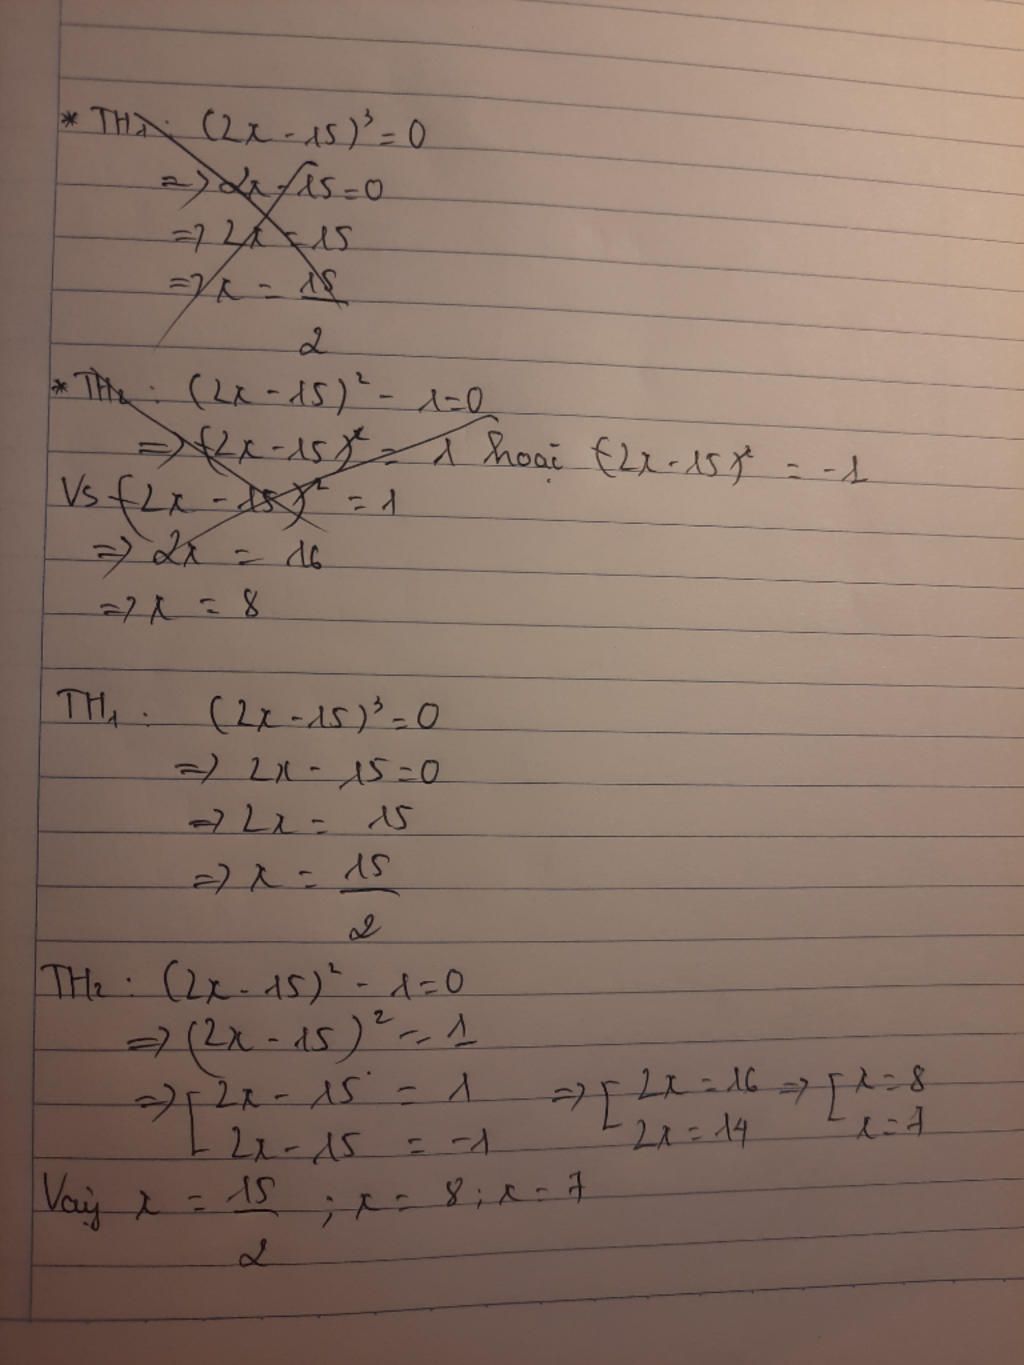 * TH₁: (2x - 15)³ = 0
=> 2x - 15 = 0
=> 2x = 15
=> x = 15/2
* TH₂ : (2x - 15)² - 1 = 0
=> (2x - 15)² = 1 hoặc (2x - 15)² = -1
Vs (2x - 15)² = 1
=> 2x = 16
=> x = 8
TH₁ : (2x - 15)³ = 0
=> 2x - 15 = 0
=> 2x = 15
=> x = 15/2
TH₂ : (2x - 15)² - 1 = 0
=> (2x - 15)² = 1
=> [ 2x - 15 = 1 => [ 2x = 16 => [ x = 8
2x - 15 = -1 2x = 14 x = 7
Vậy x = 15/2 ; x = 8 ; x = 7